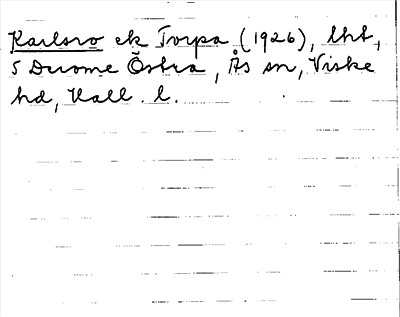 Karlsro ek Torpa (1926), lht,
5 Derome Östra, Ås sn, Viske
hd, Hall. l.